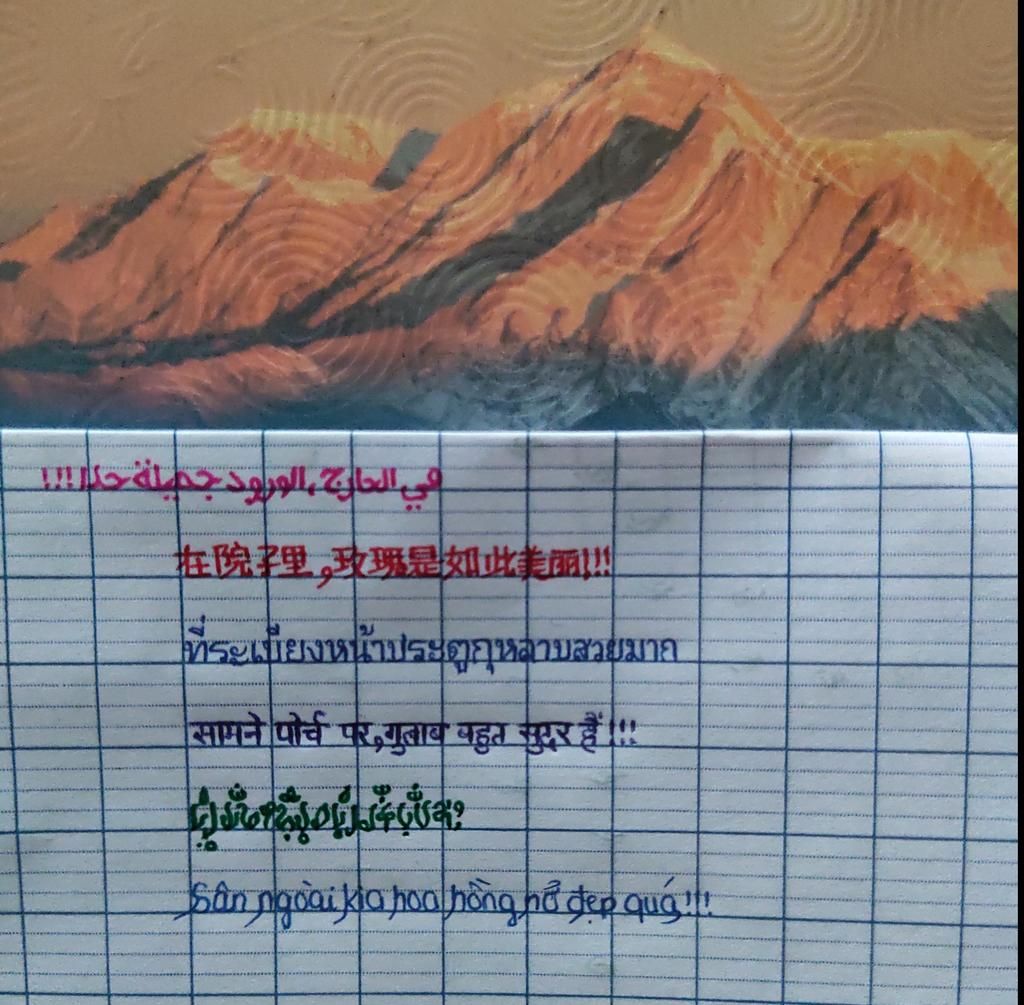 في الخارج ,الورود جميلة جدا!!!
在院子里,玫瑰是如此美丽!!!
ที่ระเบียงหน้าประตูกุหลาบสวยมาก
सामने पोर्च पर,गुलाब बहुत सुंदर हैं!!!
Sân ngoài kia hoa hồng nở đẹp quá!!!